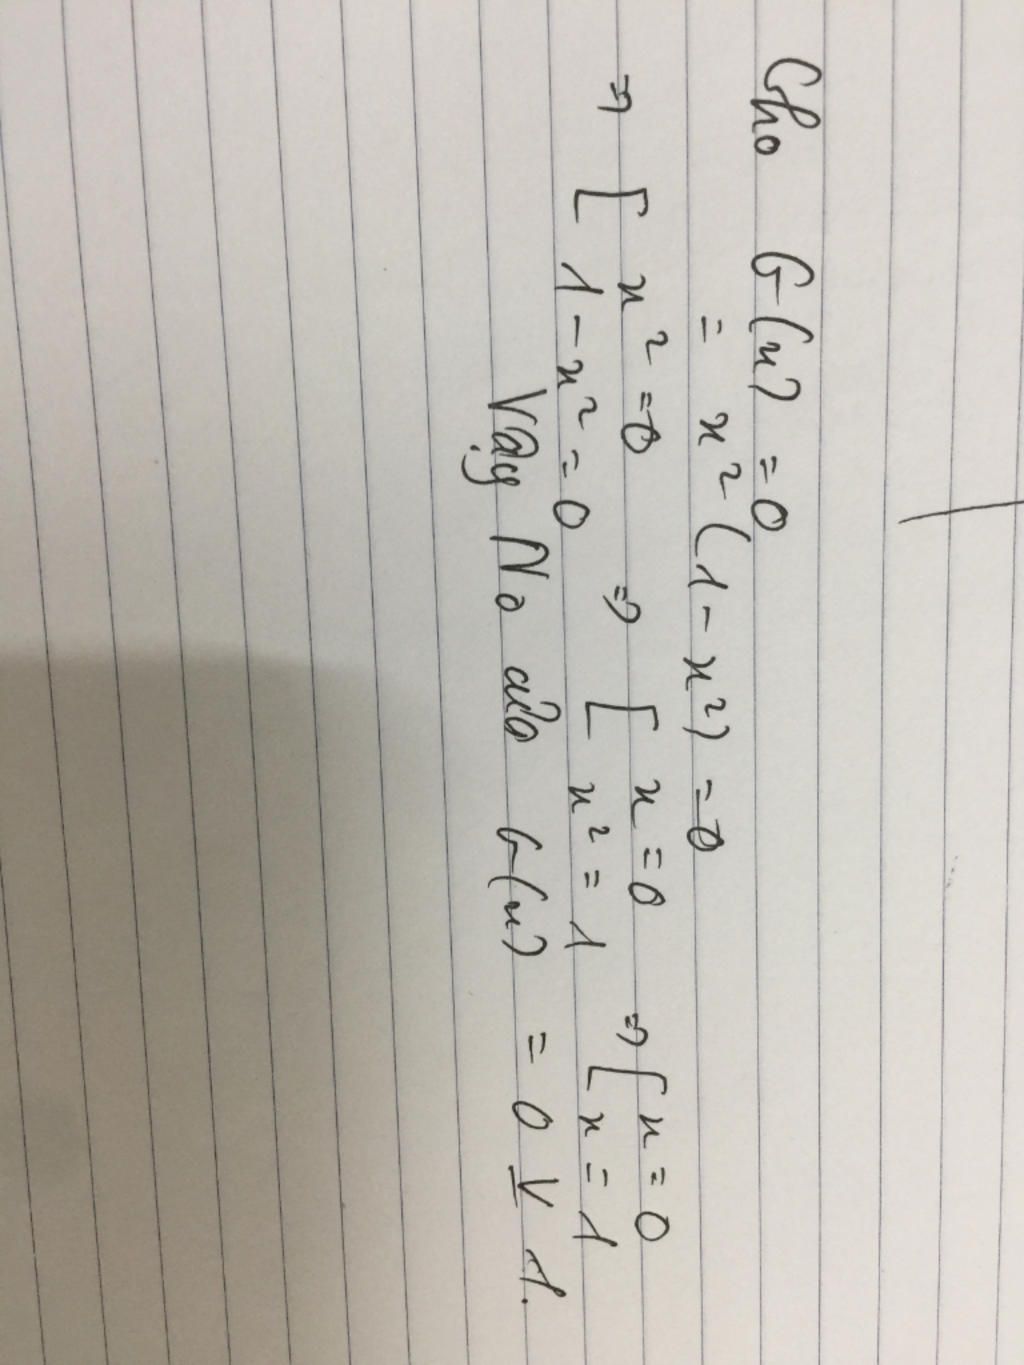 Cho G(x) = 0
= x²(1 - x²) = 0
⇒ [ x² = 0 ⇒ [ x = 0 ⇒ [ x = 0
1 - x² = 0 x² = 1 x = 1
Vậy No của G(x) = 0 V 1.